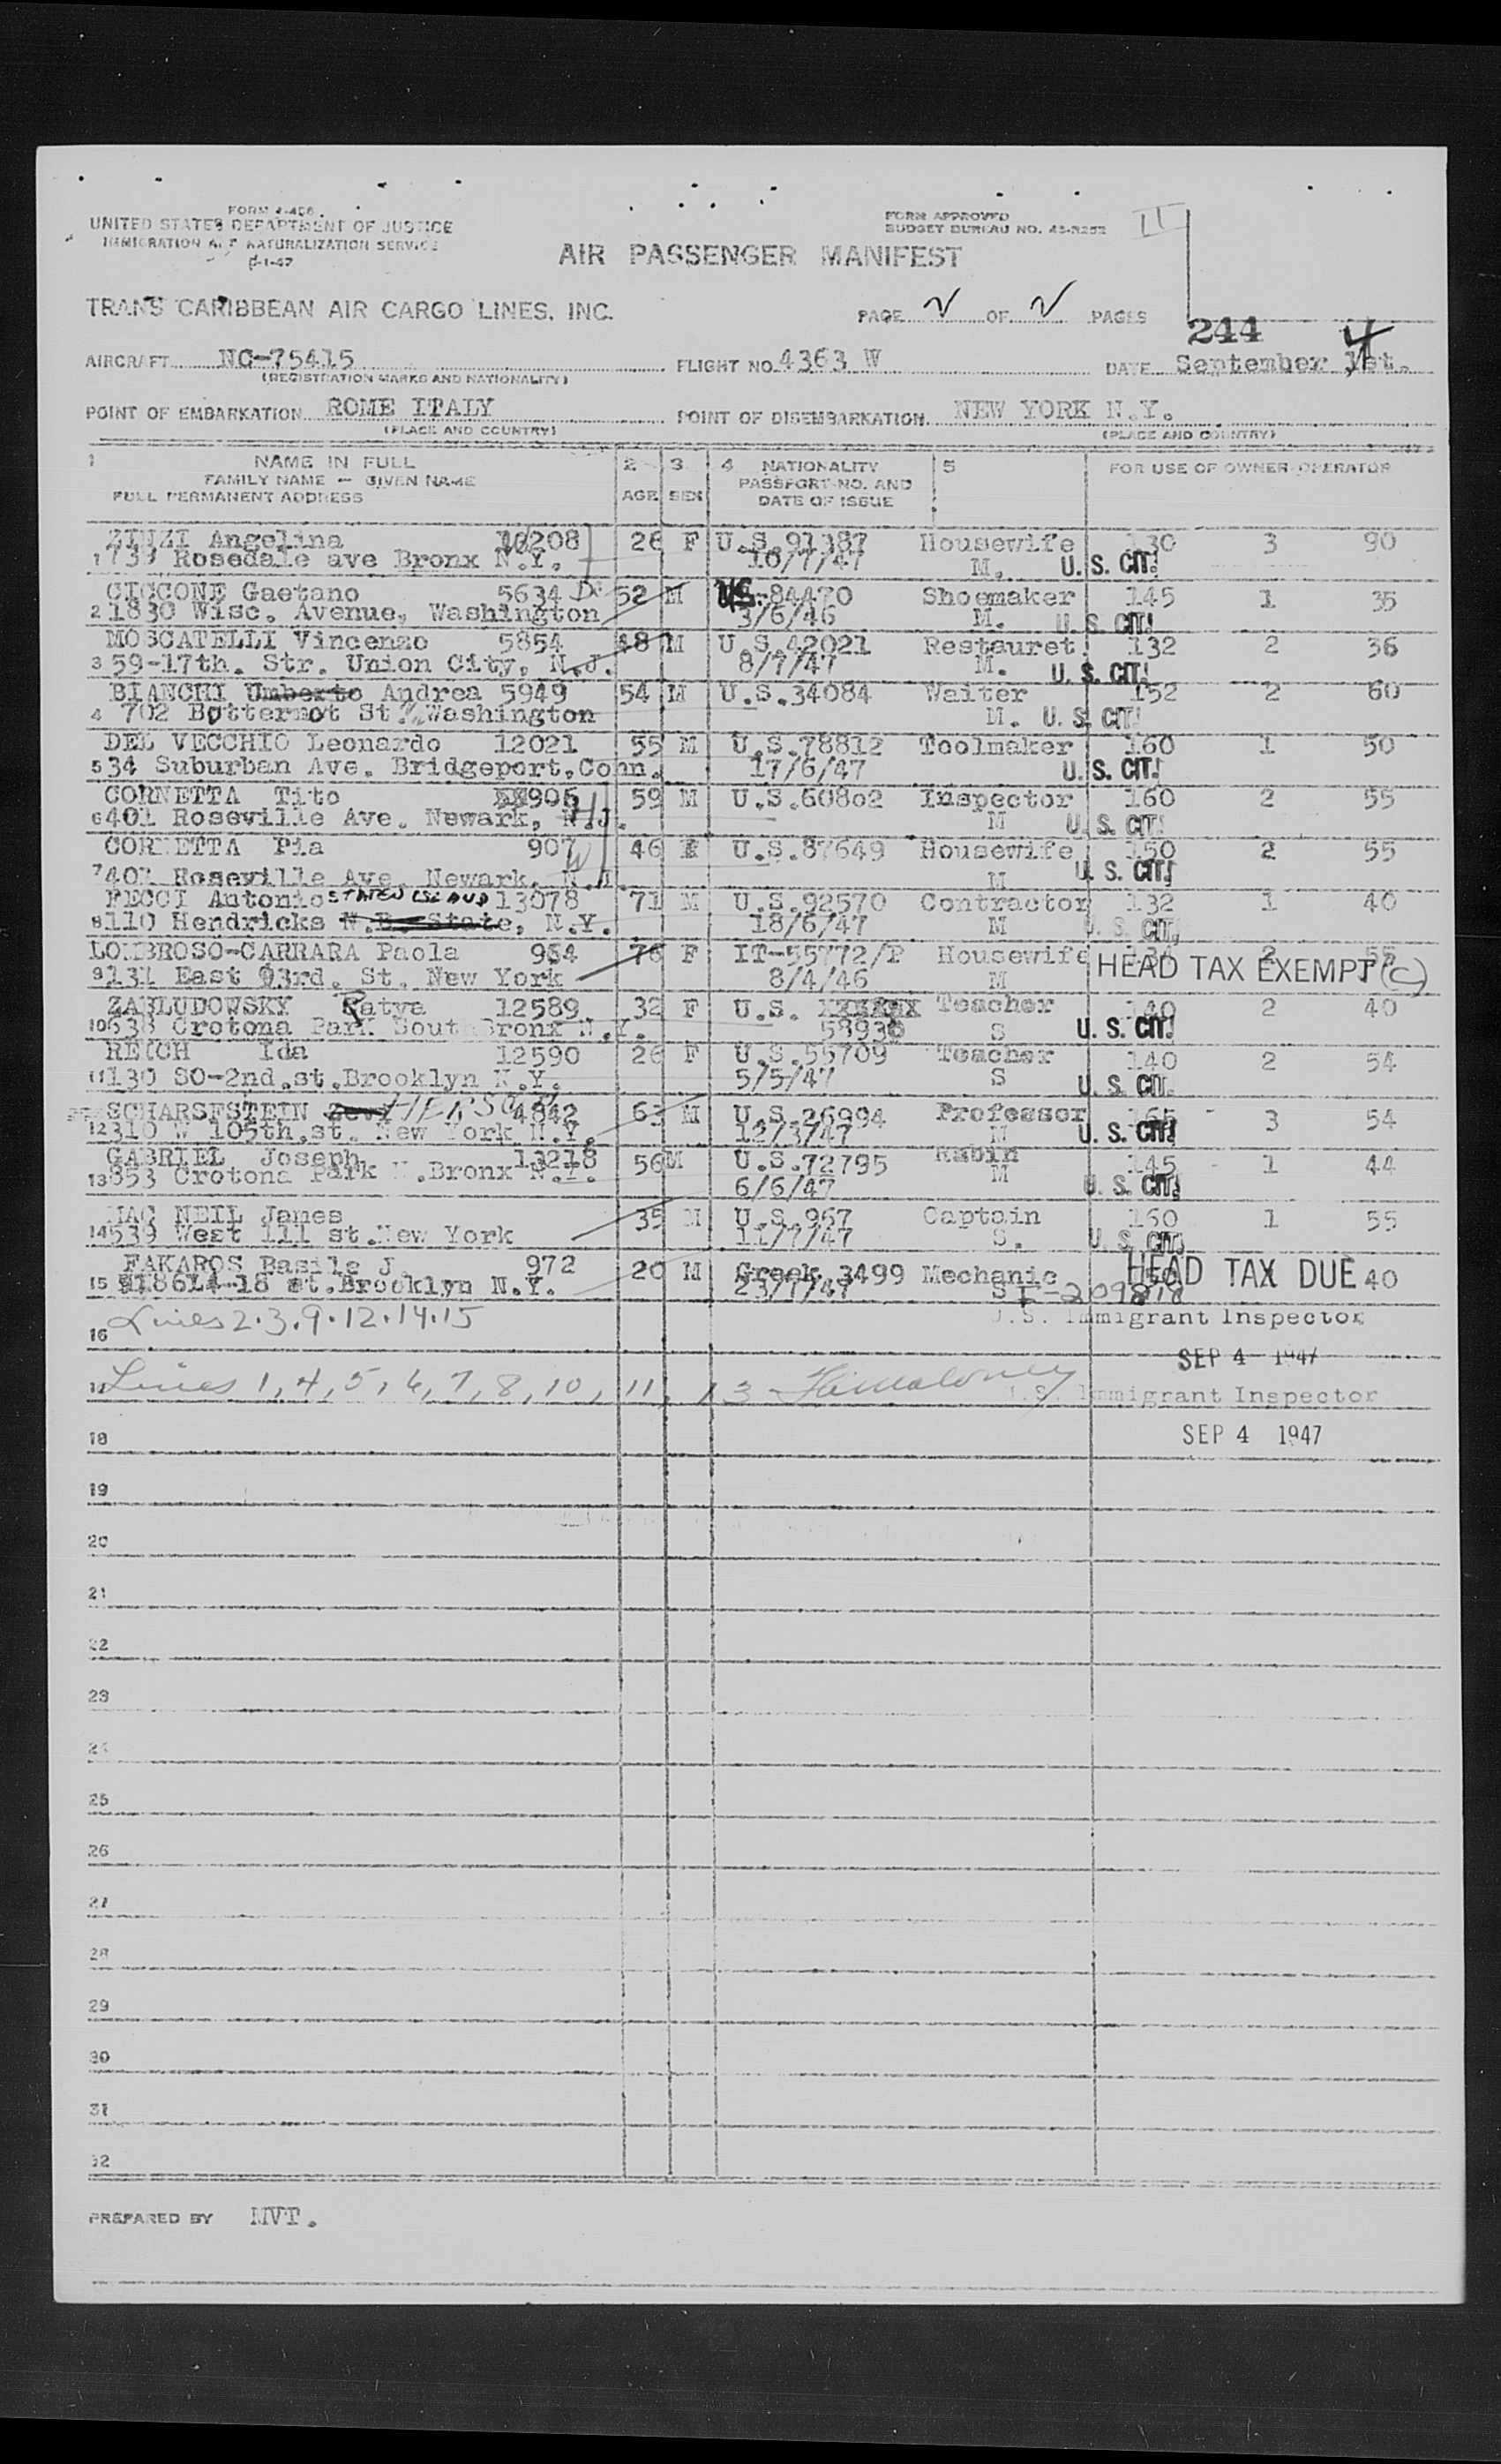 FORM I-466
UNITED STATES DEPARTMENT OF JUSTICE
IMMIGRATION AND NATURALIZATION SERVICE
FORM APPROVED
BUDGET BUREAU NO. 43-R252
II
AIR PASSENGER MANIFEST
TRANS CARIBBEAN AIR CARGO LINES, INC.
PAGE 2 OF 2 PAGES
244
AIRCRAFT NC-75415 FLIGHT NO. 4363 W DATE September 1st. 4
(REGISTRATION MARKS AND NATIONALITY)
POINT OF EMBARKATION ROME ITALY POINT OF DISEMBARKATION NEW YORK N.Y.
(PLACE AND COUNTRY) (PLACE AND COUNTRY)
1 NAME IN FULL 2 3 4 NATIONALITY 5 FOR USE OF OWNER OPERATOR
FAMILY NAME — GIVEN NAME PASSPORT NO. AND
FULL PERMANENT ADDRESS AGE SEX DATE OF ISSUE
ZINZI Angelina 10208 26 F U.S. 91387 Housewife 130 3 90
1 1739 Rosedale ave Bronx N.Y. 10/7/47 M. U. S. CIT.
CICCONE Gaetano 5634 52 M US-84470 Shoemaker 145 1 35
2 1830 Wisc. Avenue, Washington 3/6/46 M. U. S. CIT.
MOSCATELLI Vincenzo 5854 48 M U.S.42021 Restauret. 132 2 36
3 59-17th. Str. Union City, N.J. 8/7/47 M. U. S. CIT.
BIANCHI Umberto Andrea 5949 54 M U.S.34084 Waiter 152 2 60
4 702 Butternot St. Washington M. U. S. CIT.
DEL VECCHIO Leonardo 12021 55 M U.S.78812 Toolmaker 160 1 50
5 34 Suburban Ave. Bridgeport,Conn. 17/6/47 U. S. CIT.
CORNETTA Tito 905 59 M U.S.60802 Inspector 160 2 55
6 401 Roseville Ave. Newark, N.J. M U. S. CIT.
CORNETTA Pia 907 46 F U.S.87649 Housewife 150 2 55
7 401 Roseville Ave. Newark. N.J. M U. S. CIT.
PECCI Antonio STATEN ISLAND 13078 71 M U.S.92570 Contractor 132 1 40
8 110 Hendricks N.B. State, N.Y. 18/6/47 M U. S. CIT.
LOMBROSO-CARRARA Paola 954 76 F IT-55772/P Housewife 2 55
9 131 East 93rd. St. New York 8/4/46 M HEAD TAX EXEMPT (C)
ZABLUDOWSKY Ratya 12589 32 F U.S. Teacher 140 2 40
10 638 Crotona Park South Bronx N.Y. 58930 S U. S. CIT.
REICH Ida 12590 26 F U.S.55709 Teacher 140 2 54
11 130 SO-2nd.st.Brooklyn N.Y. 5/5/47 S U. S. CIT.
SCHARSFSTEIN 4842 63 M U.S.26994 Professor 165 3 54
12 310 W 105th.st. New York N.Y. 12/3/47 M U. S. CIT.
GABRIEL Joseph 13218 56 M U.S.72795 Rabin 145 1 44
13 853 Crotona Park N.Bronx N.Y. 6/6/47 M U. S. CIT.
MAC NEIL James 35 M U.S.967 Captain 160 1 55
14 539 West 111 st.New York 11/7/47 S. U. S. CIT.
FAKAROS Basile J. 972 20 M Greek 3499 Mechanic HEAD TAX DUE 40
15 st.Brooklyn N.Y. 23/7/47 S
16 Lines 2.3.9.12.14.15 U.S. Immigrant Inspector
SEP 4 1947
17 Lines 1, 4, 5, 6, 7, 8, 10, 11, 13 U.S. Immigrant Inspector
18 SEP 4 1947
19
20
21
22
23
24
25
26
27
28
29
30
31
32
PREPARED BY MVT.